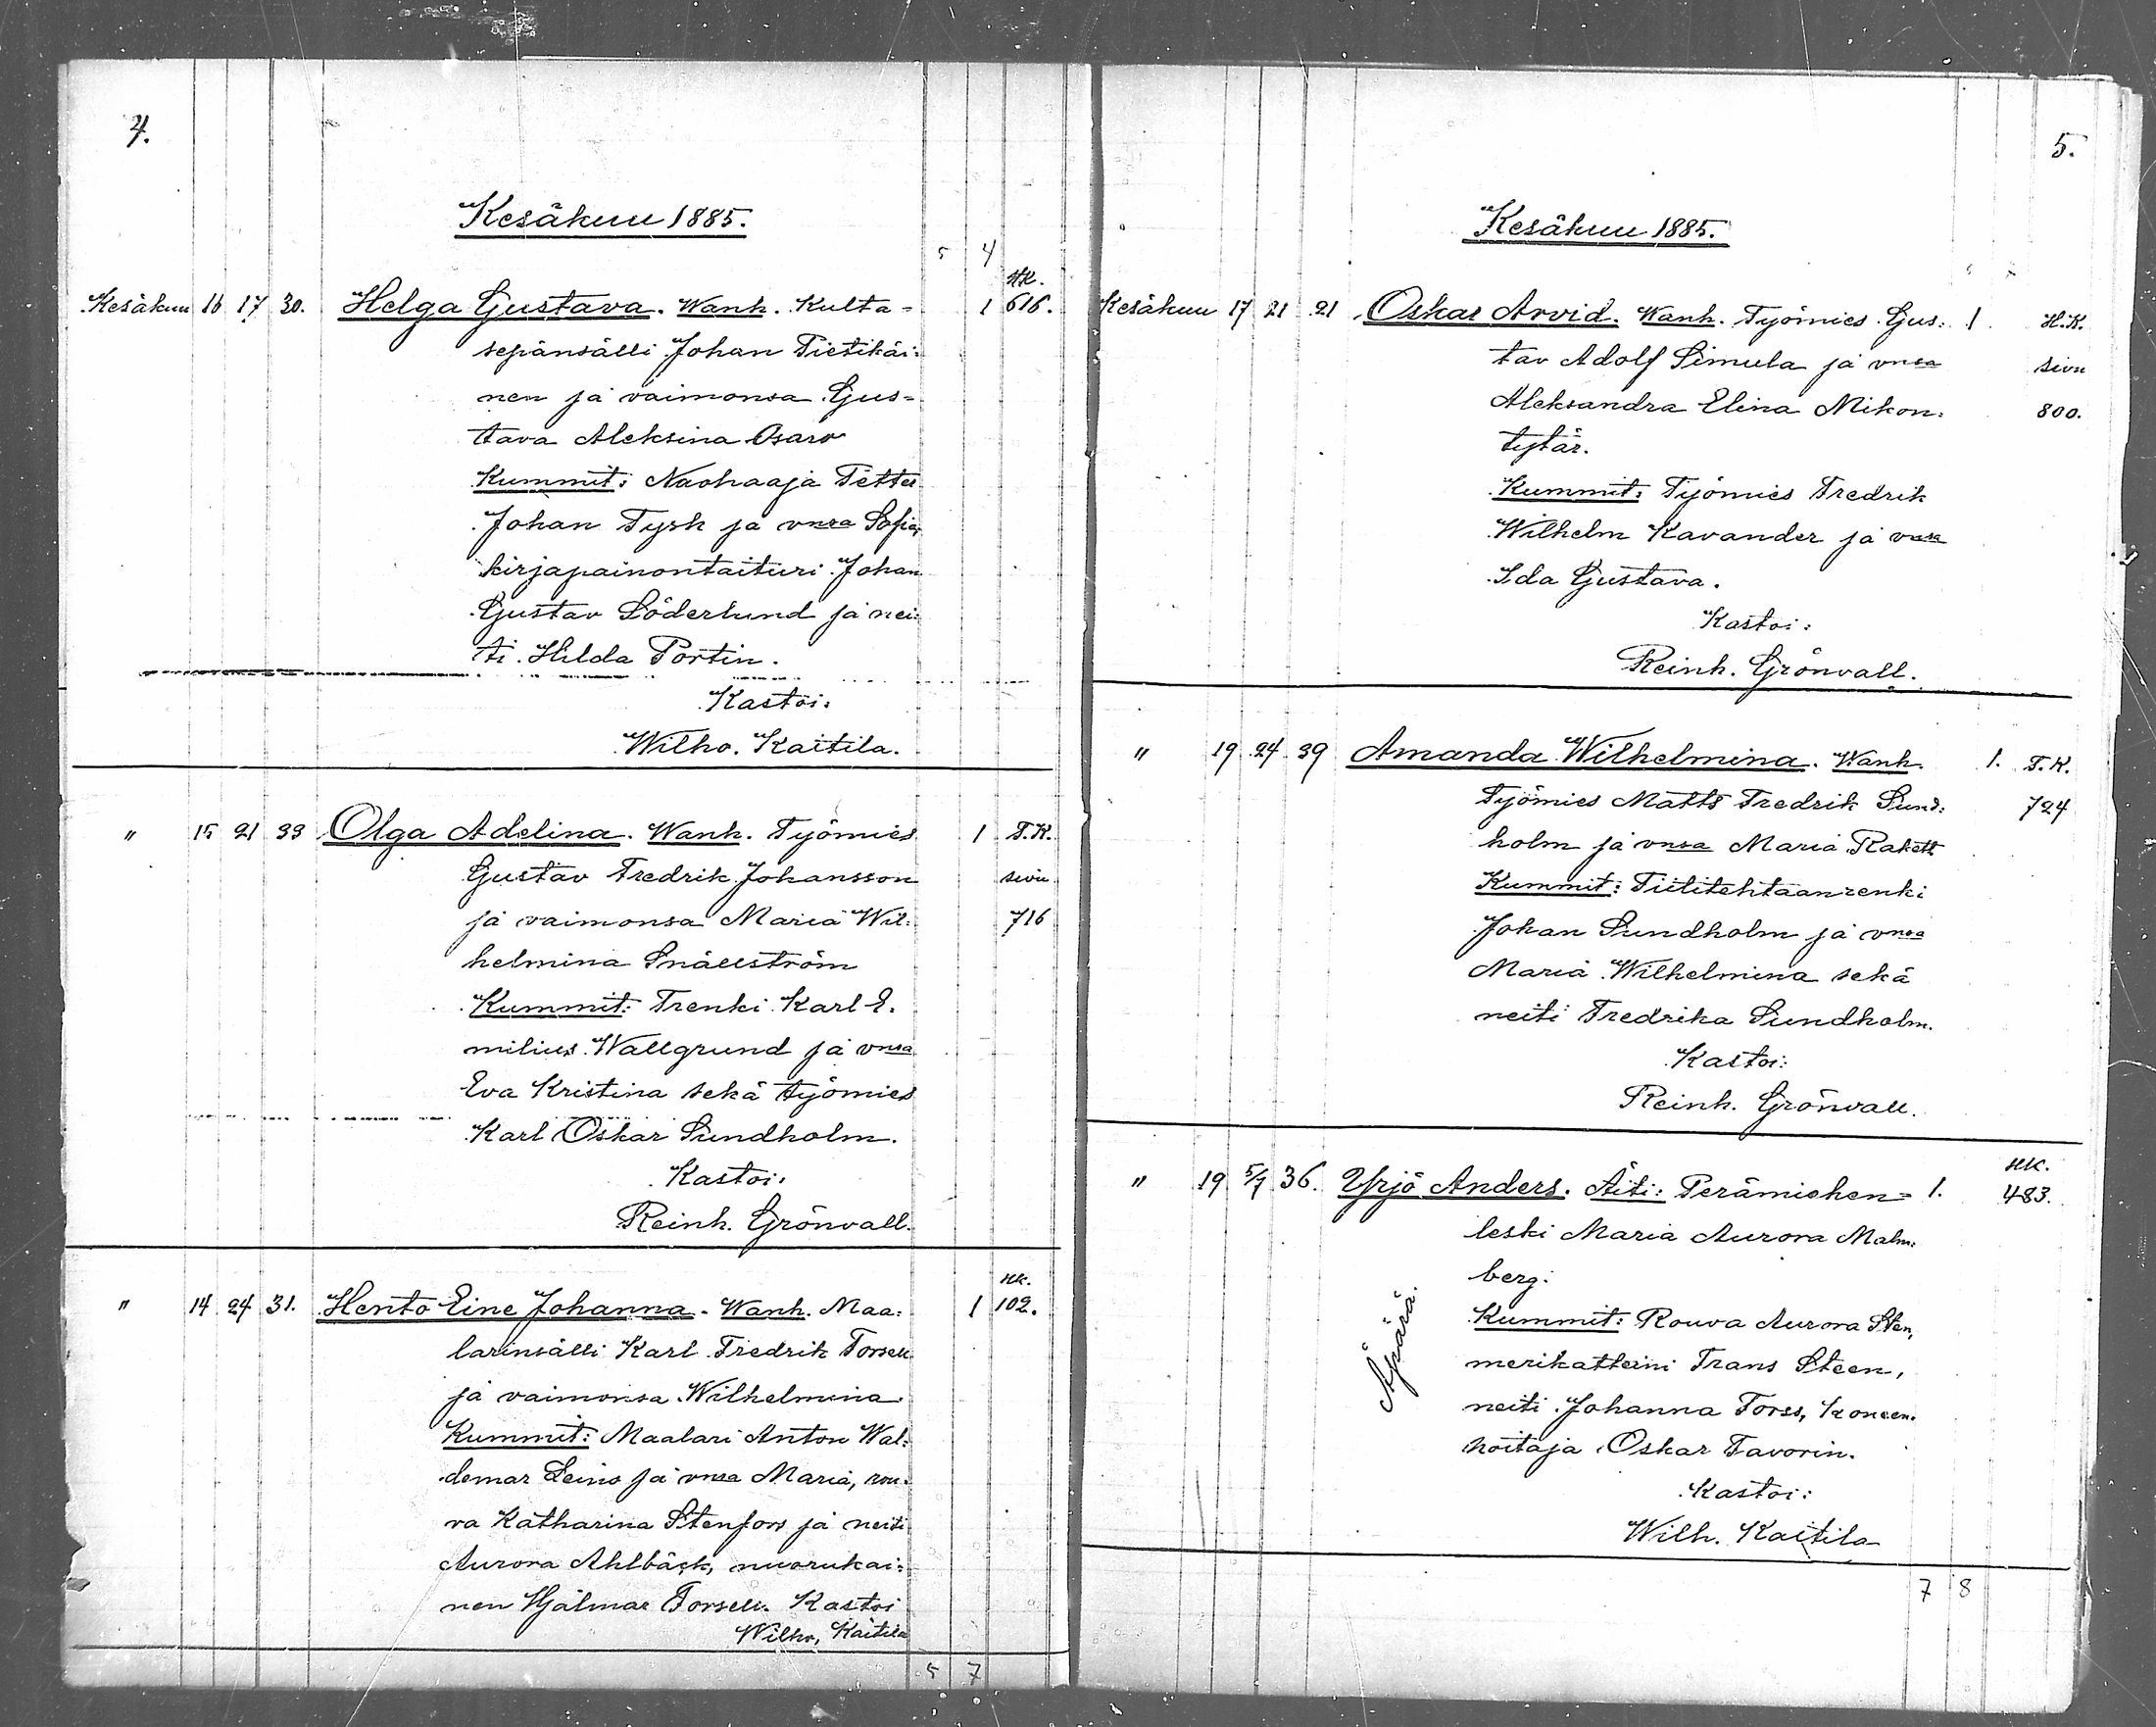 4.
Kesäkuu 1885.
5 4
HK.
Kesäkuu 16 17 30. Helga Gustava. Wanh. Kulta- 1 616.
sepänsälli Johan Tietikäi:
nen ja vaimonsa Gus-
tava Aleksina
Kummit: Naohaaja Petter
Johan Tysk ja vnsa Sofia,
kirjapainontaituri Johan
Gustav Söderlund ja nei:
ti Hilda Portin.
Kastoi:
Wilho. Kaitila.
" 15 21 33 Olga Adelina. Wanh. Työmies 1 T.K.
Gustav Fredrik Johansson sivu
ja vaimonsa Maria Wil: 716
helmina Snällström
Kummit: Trenki Karl E.
milius Wallgrund ja vnsa
Eva Kristina sekä työmies
Karl Oskar Sundholm.
Kastoi:
Reinh. Grönvall.
HK.
" 14 24 31. Hento Eine Johanna. Wanh. Maa: 1 102.
larinsälli Karl Fredrik Forsell
ja vaimonsa Wilhelmina
Kummit: Maalari Anton Wal:
demar Leino ja vnsa Maria, rou:
va Katharina Stenfors ja neiti
Aurora Ahlbäck, nuorukai:
nen Hjalmar Forsell. Kastoi
Wilho, Kaitila
5 7
5.
Kesäkuu 1885.
Kesäkuu 17 21 21 Oskar Arvid. Wanh. Työmies Gus: 1 H.K.
tav Adolf Simula ja vnsa sivu
Aleksandra Elina Mikon: 800.
tytär.
Kummit: Työmies Fredrik
Wilhelm Kavander ja vnsa
Ida Gustava.
Kastoi:
Reinh. Grönvall.
" 19 24 39 Amanda Wilhelmina. Wanh. 1. T.K.
Työmies Matts Fredrik Sund: 724
holm ja vnsa Maria Rakett
Kummit: Tiilitehtaanrenki
Johan Sundholm ja vnsa
Maria Wilhelmina sekä
neiti Fredrika Sundholm.
Kastoi:
Reinh. Grönvall.
HK.
" 19 5/7 36. Yrjö Anders. Äiti: Perämiehen- 1. 483.
leski Maria Aurora Malm:
berg.
Äpärä.
Kummit: Rouva Aurora Sten,
merikatteini Frans Steen,
neiti Johanna Forss, koneen.
hoitaja Oskar Favorin.
Kastoi:
Wilh. Kaitila
7 8